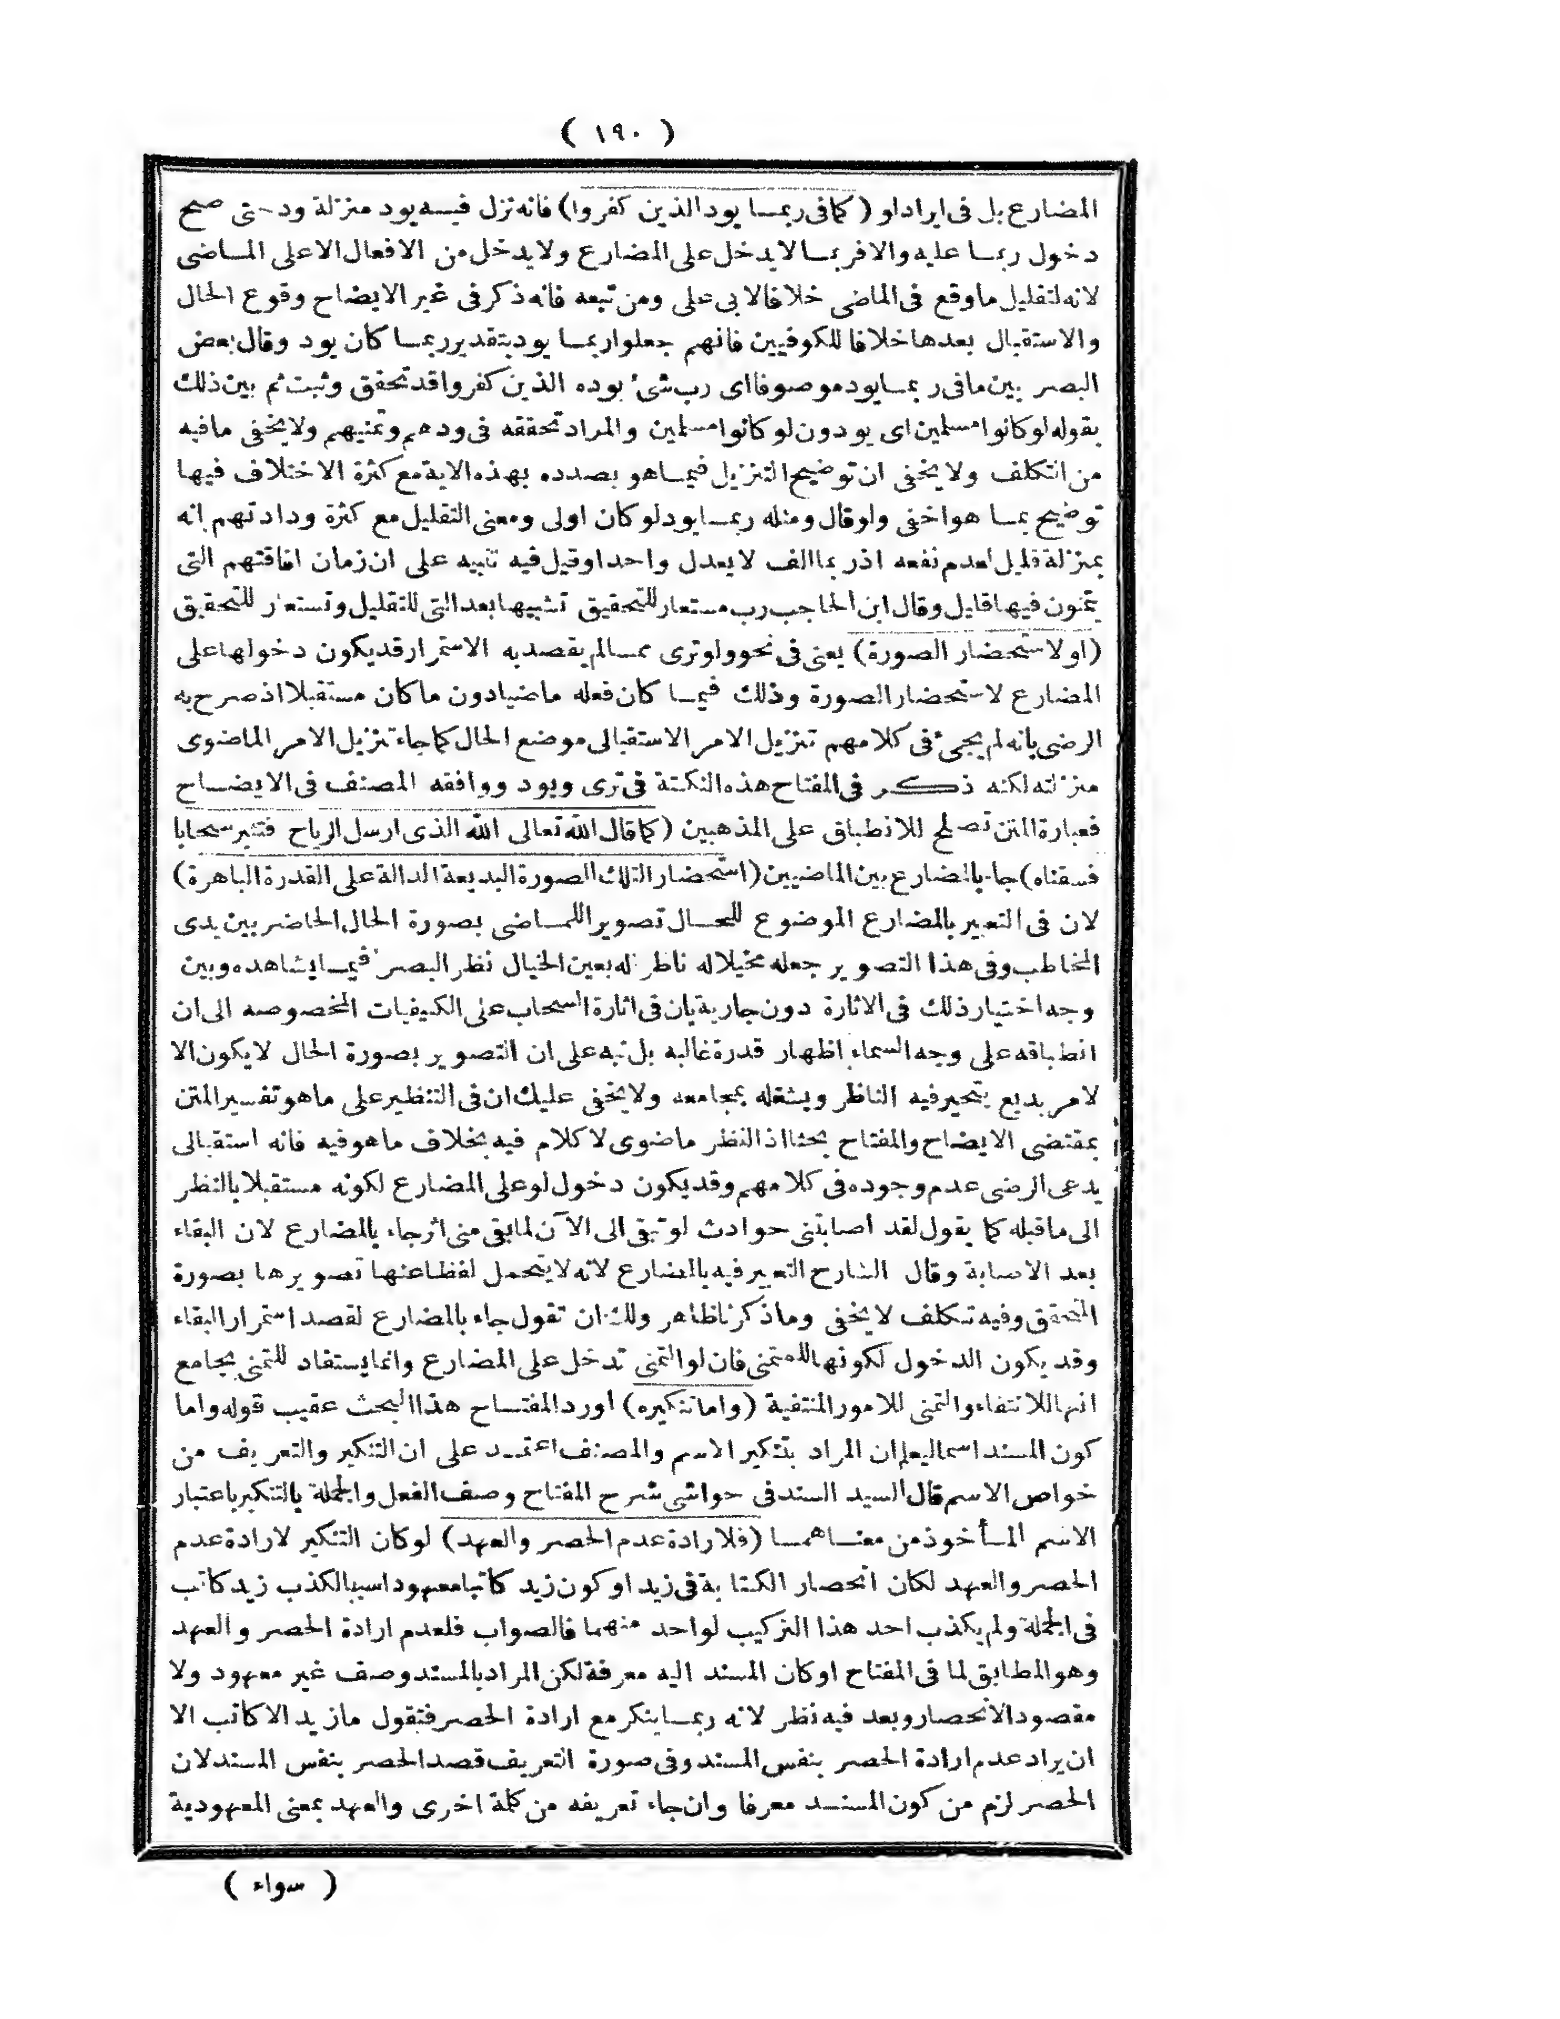 ( ١٩٠ )
المضارع بل فى ايراد لو ( كما فى ربمـا يود الذين كفروا ) فانه نزل فيـه يود منزلة ود حتى صح
دخول ربمـا عليه والا فربمـا لا يدخل على المضارع ولا يدخل من الافعال الا على المـاضى
لانه لتقليل ما وقع فى الماضى خلافا لابى على ومن تبعه فانه ذكر فى غير الايضاح وقوع الحال
والاستقبال بعدها خلافا للكوفيين فانهم جعلوا ربمـا يود بتقدير ربمـا كان يود وقال بعض
البصر بين ما فى ربمـا يود موصوفا اى رب شئ بوده الذين كفروا قد تحقق وثبت ثم بين ذلك
بقوله لو كانوا مسلمين اى يودون لو كانوا مسلمين والمراد تحققه فى ودهم وتمنيهم ولا يخفى ما فيه
من التكلف ولا يخفى ان توضيح التنزيل فيمـا هو بصدده بهذه الاية مع كثرة الاختلاف فيها
توضيح بمـا هو اخفى ولو قال ومثله ربمـا يود لو كان اولى ومعنى التقليل مع كثرة ودادتهم انه
بمنزلة قليل لعدم نفعه اذ ربما الف لا يعدل واحدا وقيل فيه تنبيه على ان زمان افاقتهم التى
يتمنون فيها قليل وقال ابن الحاجب رب مستعار للتحقيق تشبيها بعد التى للتقليل وتستعار للتحقيق
( او لاستحضار الصورة ) يعنى فى نحو ولو ترى ممـا لم يقصد به الاستمرار قد يكون دخولها على
المضارع لاستحضار الصورة وذلك فيمـا كان فعله ماضيا دون ما كان مستقبلا اذ صرح به
الرضى بانه لم يجئ فى كلامهم تنزيل الامر الاستقبالى موضع الحال كما جاء تنزيل الامر الماضوى
منزلته لكنه ذكـر فى المفتاح هذه النكتة فى ترى ويود ووافقه المصنف فى الايضـاح
فعبارة المتن تصلح للانطباق على المذهبين ( كما قال الله تعالى الله الذى ارسل الرياح فتثير سحابا
فسقناه ) جاء بالمضارع بين الماضيين ( استحضارا لتلك الصورة البديعة الدالة على القدرة الباهرة )
لان فى التعبير بالمضارع الموضوع للحـال تصويرا للمـاضى بصورة الحال الحاضر بين يدى
المخاطب وفى هذا التصوير جعله مخيلا له ناظرا له بعين الخيال نظر البصر فيمـا يشاهده وبين
وجه اختيار ذلك فى الاثارة دون جاربة بان فى اثارة السحاب على الكيفيات المخصوصه الى ان
انطباقه على وجه السماء اظهار قدرة غالبه بل نبه على ان التصوير بصورة الحال لا يكون الا
لامر بديع يتحير فيه الناظر ويشغله بمجامعه ولا يخفى عليك ان فى التنظير على ما هو تفسير المتن
بمقتضى الايضاح والمفتاح بحثا اذ النظر ماضوى لا كلام فيه بخلاف ما هو فيه فانه استقبالى
يدعى الرضى عدم وجوده فى كلامهم وقد يكون دخول لو على المضارع لكونه مستقبلا بالنظر
الى ما قبله كما يقول لقد اصابتنى حوادث لو تبقى الى الآن لما بقى منى اثر جاء بالمضارع لان البقاء
بعد الاصابة وقال الشارح التعبير فيه بالمضارع لانه لا يتحمل لفظاعتها تصويرها بصورة
المتحقق وفيه تكلف لا يخفى وما ذكرنا ظاهر ولك ان تقول جاء بالمضارع لقصد استمرار البقاء
وقد يكون الدخول لكونها للتمنى فان لو التمنى تدخل على المضارع وانما يستفاد للتمنى بجامع
انها للانتفاء والتمنى للامور المنتفية ( واما تنكيره ) اورد المفتـاح هذا البحث عقيب قوله واما
كون المسند اسما ليعلم ان المراد بتنكير الاسم والمصنف اعتمـد على ان التنكير والتعريف من
خواص الاسم قال السيد السند فى حواشى شرح المفتاح وصف الفعل والجملة بالتنكير باعتبار
الاسم المـأخوذ من معنـاهمـا ( فلارادة عدم الحصر والعهد ) لو كان التنكير لارادة عدم
الحصر والعهد لكان انحصار الكتابة فى زيد او كون زيد كاتبا معهودا سببا لكذب زيد كاتب
فى الجملة ولم يكذب احد هذا التركيب لواحد منهما فالصواب فلعدم ارادة الحصر والعهد
وهو المطابق لما فى المفتاح او كان المسند اليه معرفة لكن المراد بالمسند وصف غير معهود ولا
مقصود الانحصار وبعد فيه نظر لانه ربمـا ينكر مع ارادة الحصر فتقول ما زيد الا كاتب الا
ان يراد عدم ارادة الحصر بنفس المسند وفى صورة التعريف قصد الحصر بنفس المسند لان
الحصر لزم من كون المسنـد معرفا وان جاء تعريفه من كلمة اخرى والعهد بمعنى المعهودية
( سواء )